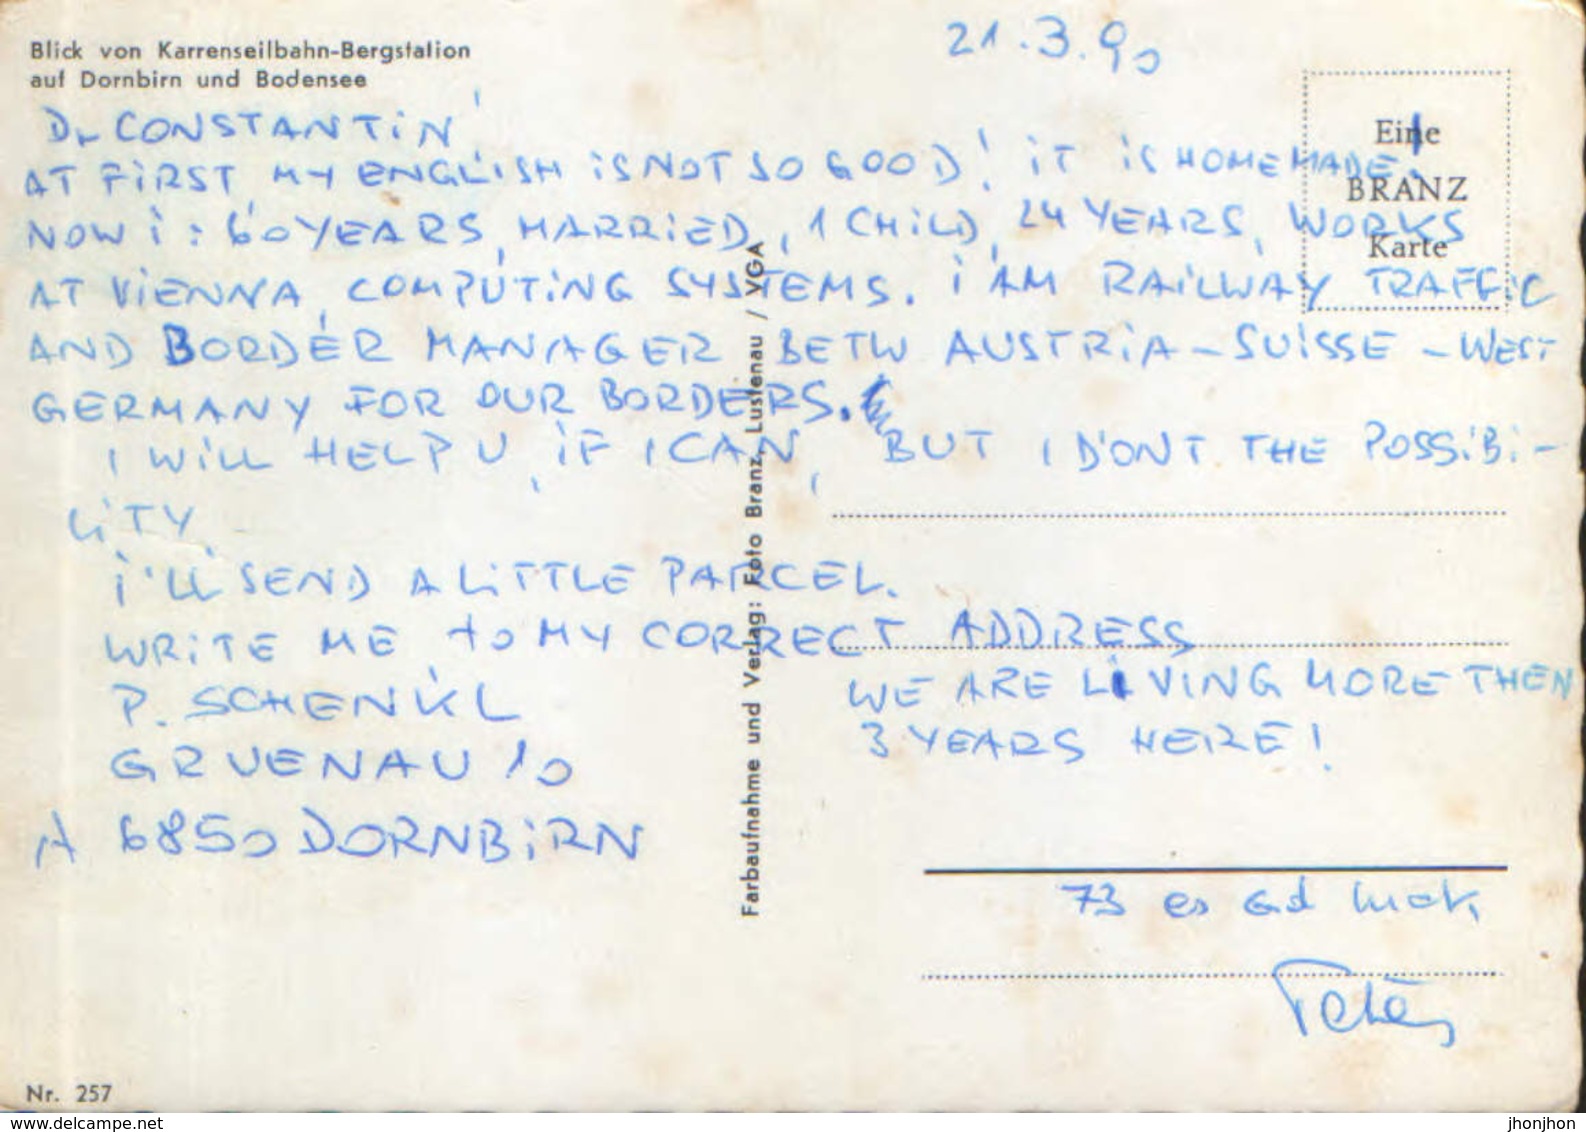 Blick von Karrenseilbahn-Bergstation
auf Dornbirn und Bodensee
21.3.90
Eine
BRANZ
Karte
Dr CONSTANTiN,
AT FiRST MY ENGLiSH iS NOT SO GOOD! iT iS HOMEMADE!
NOW i: 60 YEARS, MARRiED, 1 CHiLD, 24 YEARS, WORKS
AT ViENNA, COMPUTiNG SYSTEMS. i AM RAiLWAY TRAFFiC
AND BORDER MANAGER BETW AUSTRiA-SUiSSE-WEST
GERMANY FOR OUR BORDERS.
I WiLL HELP U, iF I CAN, BUT I D'ONT THE POSSiBi-
LiTY.
i'LL SEND A LiTTLE PARCEL.
WRiTE ME to MY CORRECT ADDRESS
P. SCHENKL
GRUENAU 10
A 6850 DORNBiRN
WE ARE LiVING MORE THEN
3 YEARS HERE!
73 es Gd luck,
Peter
Farbaufnahme und Verlag: Foto Branz, Lustenau / VGA
Nr. 257
www.delcampe.net
jhonjhon